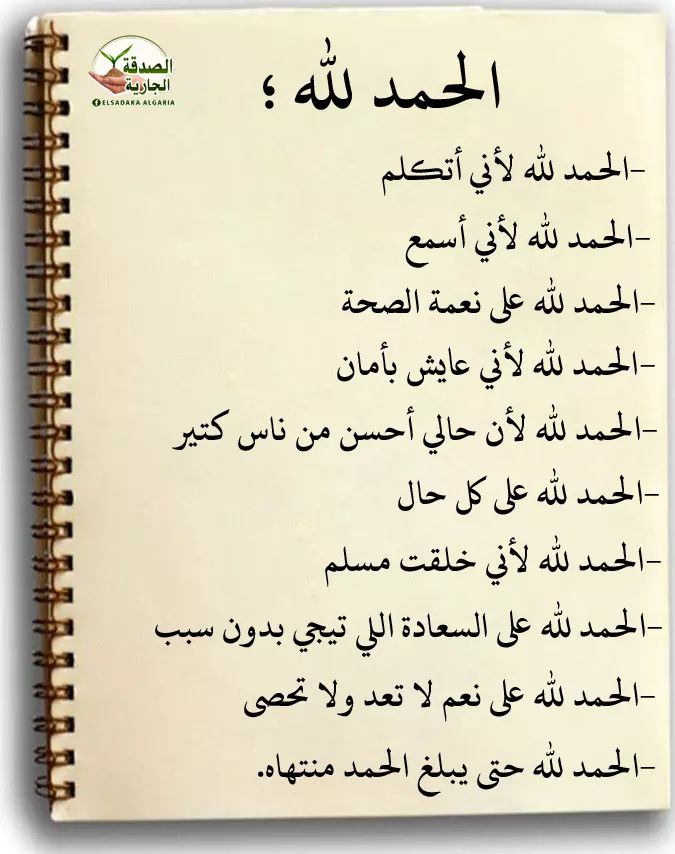 الصدقة
الجارية
ELSADAKA ALGARIA
الحمد لله ؛
-الحمد لله لأني أتكلم
-الحمد لله لأني أسمع
-الحمد لله على نعمة الصحة
-الحمد لله لأني عايش بأمان
-الحمد لله لأن حالي أحسن من ناس كتير
-الحمد لله على كل حال
-الحمد لله لأني خلقت مسلم
-الحمد لله على السعادة اللي تيجي بدون سبب
-الحمد لله على نعم لا تعد ولا تحصى
-الحمد لله حتى يبلغ الحمد منتهاه.